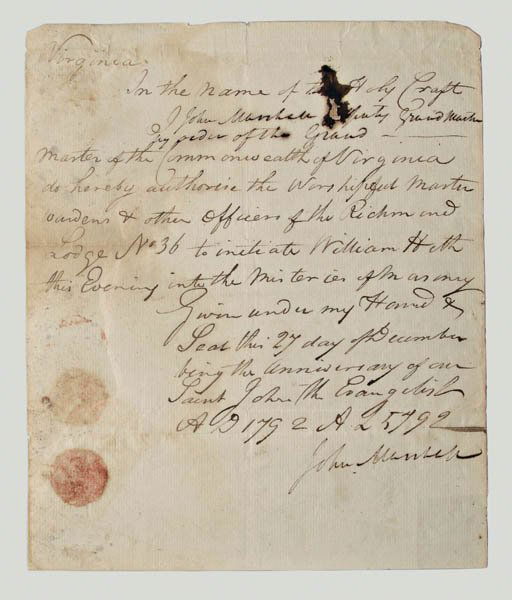 Virginia
In the name of the Holy Craft
I John Marshall Deputy Grand Master
by order of the Grand
Master of the Commonwealth of Virginia
do hereby authorise the Worshipful Master
wardens & other Officers of the Richmond
Lodge No 36 to initiate William Heth
this Evening into the Misteries of Masonry
Given under my Hand &
Seal this 27 day of December
being the Anniversary of our
Saint John the Evangelist
A D 1792 A L 5792
John Marshall